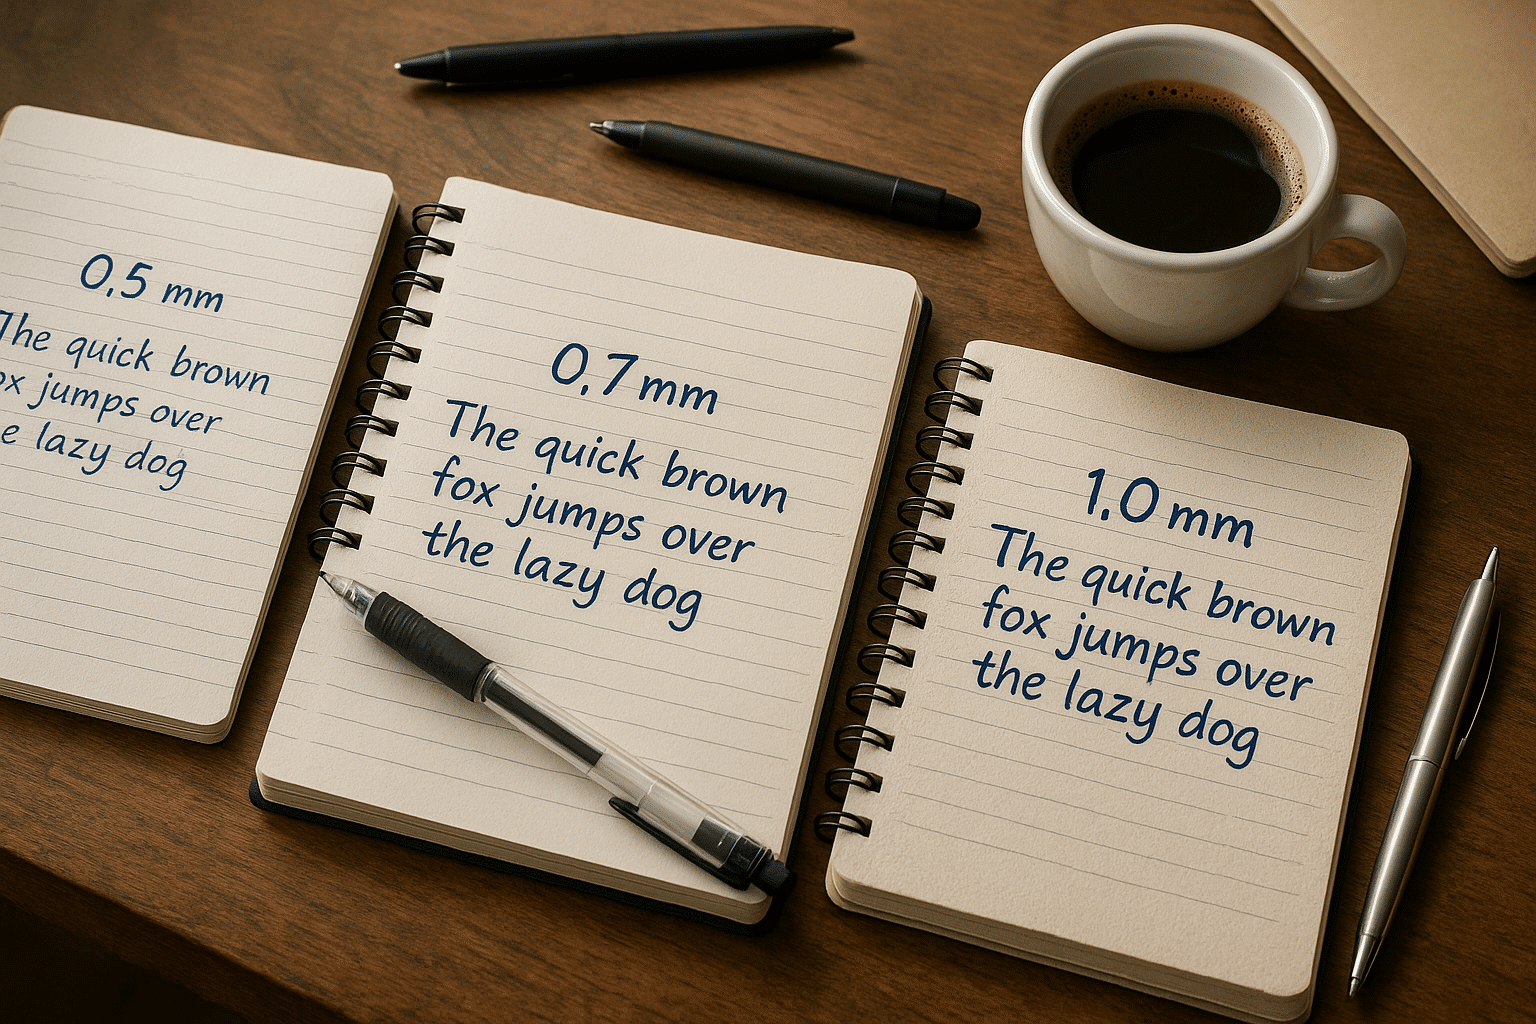 0.5 mm
The quick brown
ox jumps over
e lazy dog
0.7 mm
The quick brown
fox jumps over
the lazy dog
1.0 mm
The quick brown
fox jumps over
the lazy dog